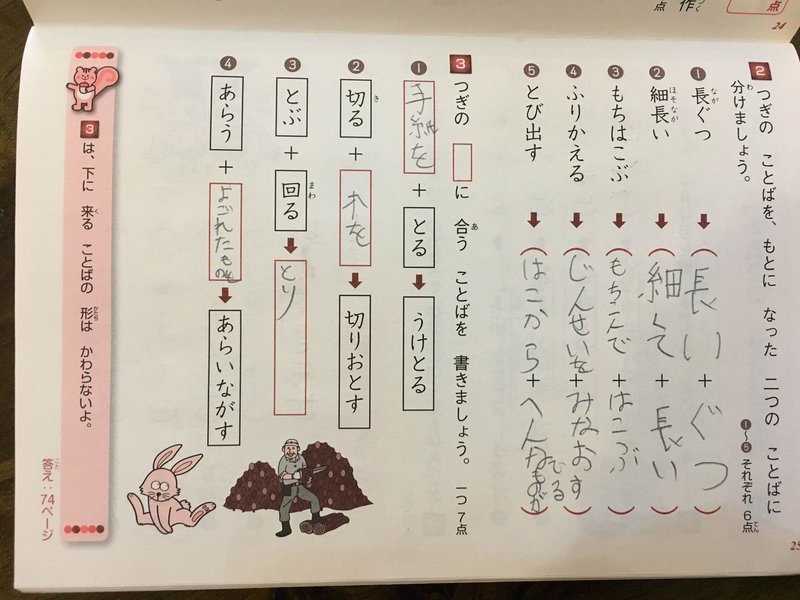 点
作
点
24
2 つぎの ことばを、もとに なった 二つの ことばに
分けましょう。
❶〜❺ それぞれ 6点
❶ 長ぐつ ➡ (長い + ぐつ)
❷ 細長い ➡ (細くて + 長い)
❸ もちはこぶ ➡ (もちこんで + はこぶ)
❹ ふりかえる ➡ (じんせいを + みなおす)
❺ とび出す ➡ (はこから + へんなものがでる)
3 つぎの □に 合う ことばを 書きましょう。 一つ 7点
❶ 手紙を + とる ➡ うけとる
❷ 切る + 木を ➡ 切りおとす
❸ とぶ + 回る ➡ とり
❹ あらう + よごれたものを ➡ あらいながす
3 は、下に 来る ことばの 形は かわらないよ。
答え:74ページ
25